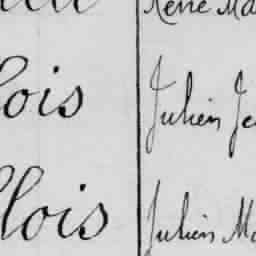 René Ma
lois Julien Je
llois Julien Ma